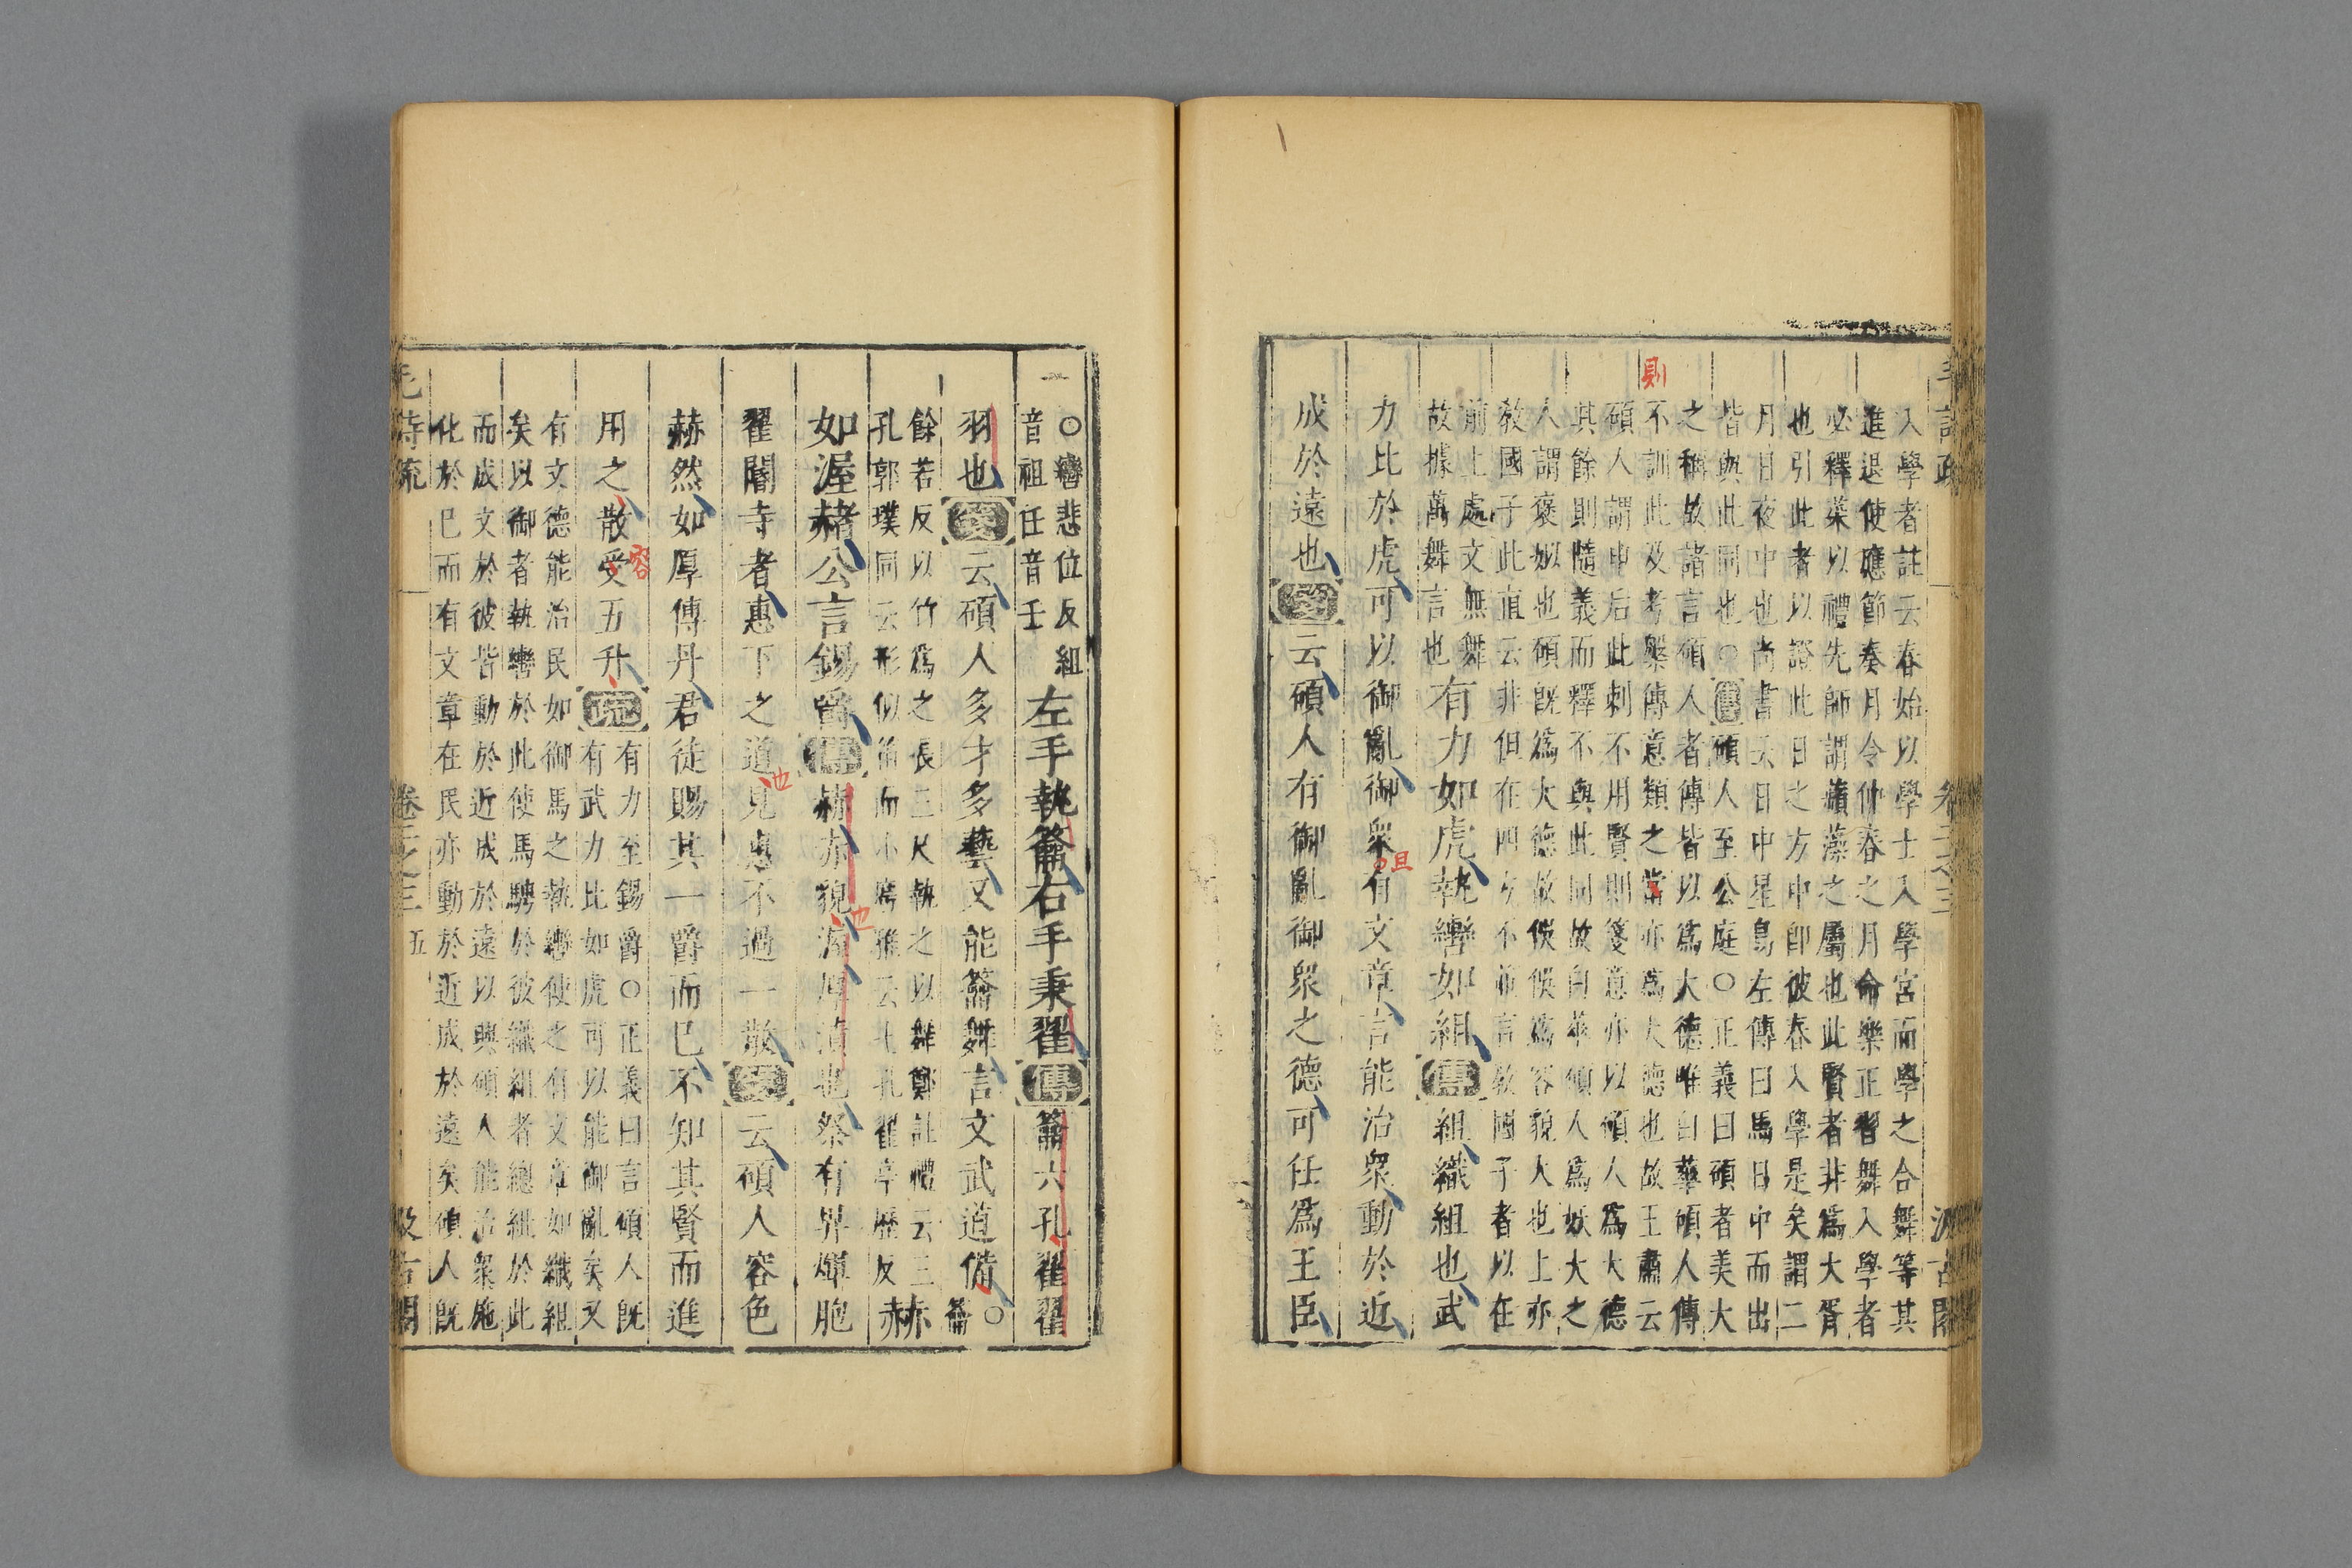 入學者註云春始以學士入學宮而學之合舞等其
進退使應節奏月令仲春之月命樂正習舞入學者
必釋菜以禮先師謂蘋藻之屬也此賢者非爲大胥
也引此者以證此日之方中卽彼春入學是矣謂二
月日夜中也尚書云日中星鳥左傳曰馬日中而出
皆與此同也○傳碩人至公庭○正義曰碩者美大
之稱故諸言碩人者傳皆以爲大德唯白華碩人傳
不訓此及考槃傳意類之當亦爲大德也故王肅云
碩人謂申后此刺不用賢則箋意亦以碩人爲大德
其餘則隨義而釋不與此同故白華碩人爲妖大之
人謂褒姒也碩旣爲大德故俁俁爲容貌大也上亦
敎國子此直云非但在四方不並言敎國子者以在
前上處文無舞
故據萬舞言也
有力如虎執轡如組傳組織組也武
力比於虎可以御亂御衆有文章言能治衆動於近
成於遠也箋云碩人有御亂御衆之德可任爲王臣
則
旦
毛詩疏 卷二之三 汲古閣
○轡悲位反組
音祖任音壬
左手執籥右手秉翟傳籥六孔翟翟
羽也箋云碩人多才多藝又能籥舞言文武道備○籥
餘若反以竹爲之長三尺執之以舞鄭註禮云三
孔郭璞同云形似笛而小廣雅云七孔翟亭歷反
赫
如渥赭公言錫爵傳赫赤貌渥厚漬也祭有畀煇胞
翟閽寺者惠下之道見惠不過一散箋云碩人容色
赫然如厚傅丹君徒賜其一爵而已不知其賢而進
用之散受五升疏
有力至錫爵○正義曰言碩人旣
有武力比如虎可以能御亂矣又
有文德能治民如御馬之執轡使之有文章如織組
矣以御者執轡於此使馬騁於彼織組者總組於此
而成文於彼皆動於近成於遠以興碩人能治衆施
化於已而有文章在民亦動於近成於遠矣碩人旣
池
池
容
毛詩疏 卷二之三 五 汲古閣